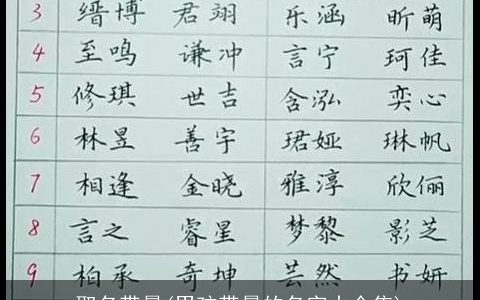 3 缙博 君翊 乐涵 昕萌
4 至鸣 谦冲 言宁 珂佳
5 修琪 世吉 含泓 奕心
6 林昱 善宇 珺娅 琳帆
7 相逢 金晓 雅淳 欣俪
8 言之 睿星 梦黎 影芝
9 柏承 奇坤 芸然 书妍